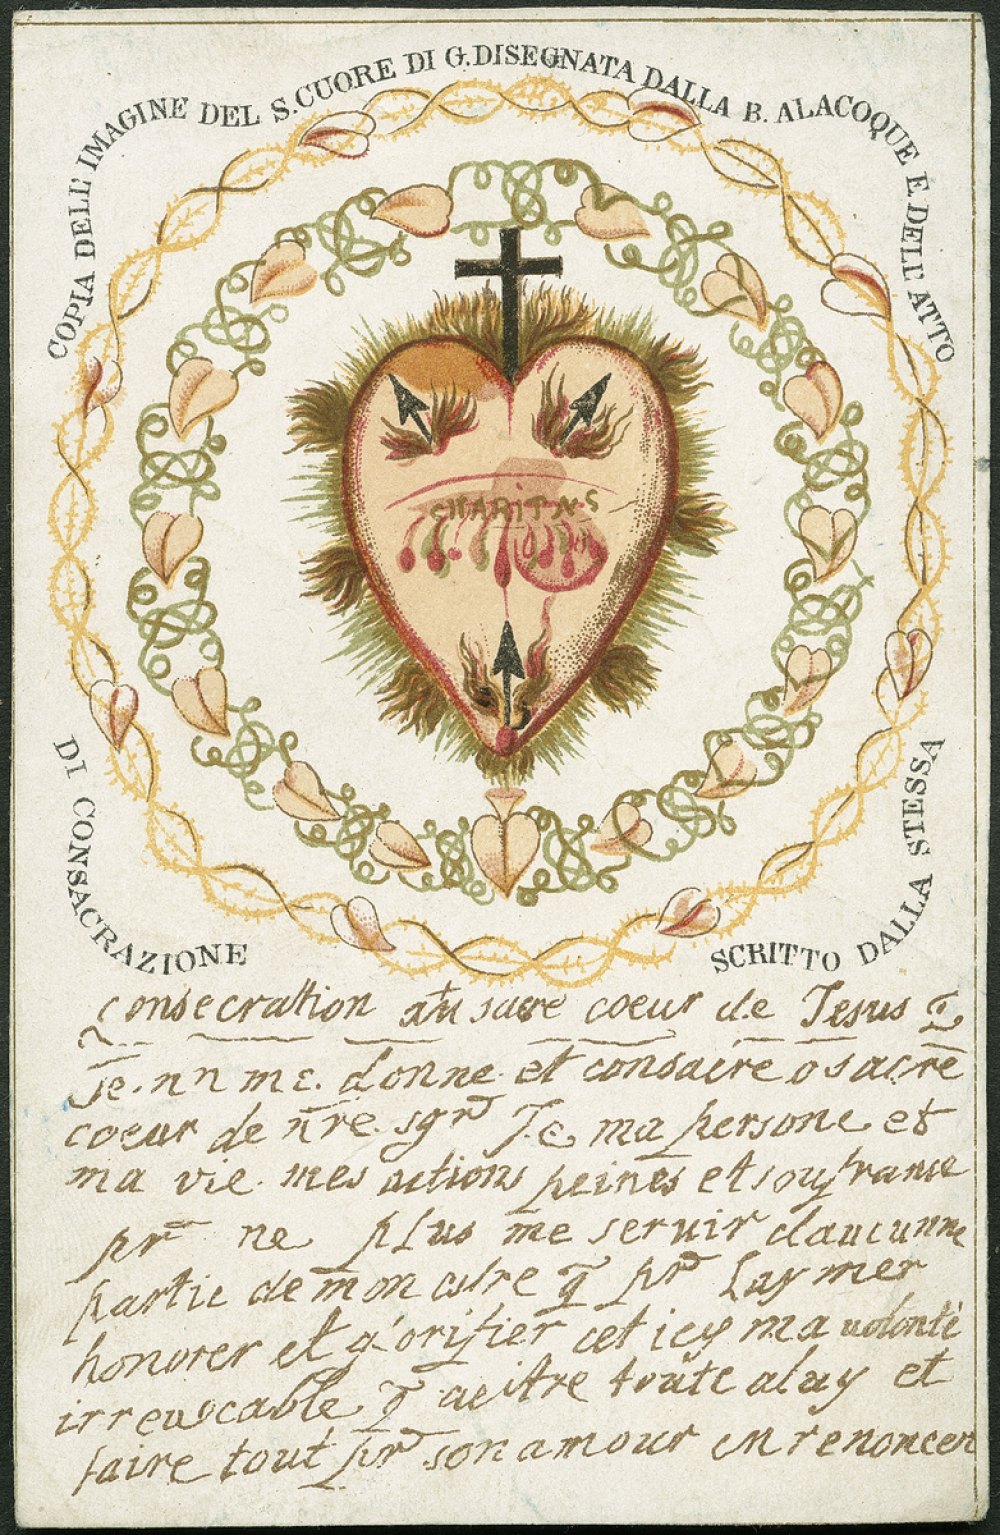 COPIA DELL' IMAGINE DEL S. CUORE DI G. DISEGNATA DALLA B. ALACOQUE E DELL' ATTO
DI CONSACRAZIONE
SCRITTO DALLA STESSA
CHARITAS
consecration au sacre coeur de Jesus
Je. nn me. donne et consacre o sacre
coeur de nre. sgr J.C. ma persone et
ma vie. mes actions peines et souffranse
pr ne plus me servir daucunne
partie de mon estre q pr laymer
honorer et glorifier cet icy ma volonté
irrevocable q deitre toute aluy et
faire tout pr son amour en renoncen